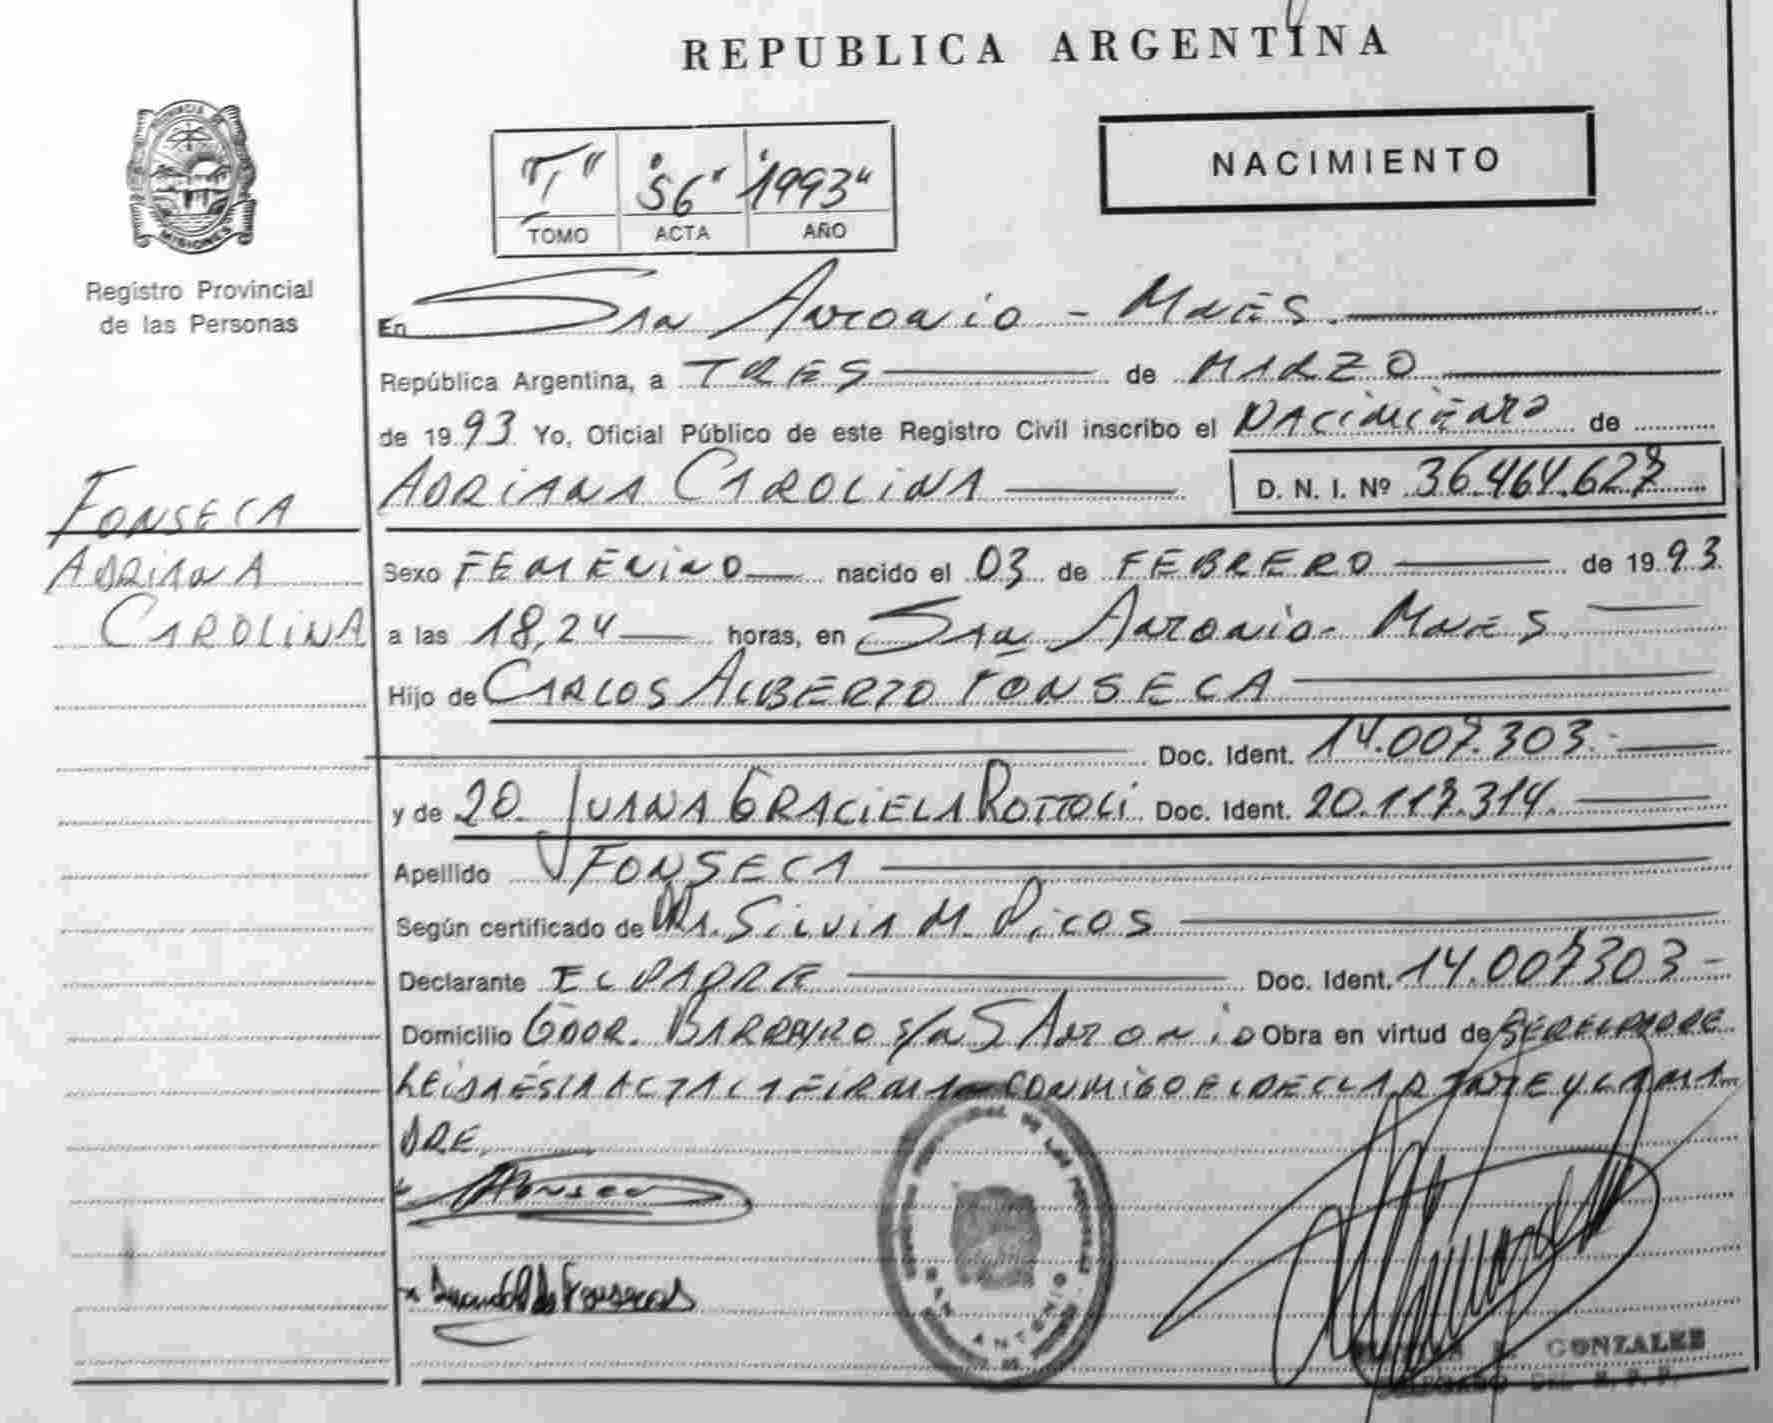 REPUBLICA ARGENTINA
NACIMIENTO
"T" "56" "1993"
TOMO ACTA AÑO
PROVINCIA DE
MISIONES
Registro Provincial
de las Personas
En San Antonio - Mnes.
República Argentina, a TRES de MARZO
de 1993 Yo, Oficial Público de este Registro Civil inscribo el NACIMIENTO de
ADRIANA CAROLINA D. N. I. Nº 36.464.627
FONSECA
ADRIANA
CAROLINA
Sexo FEMENINO nacido el 03 de FEBRERO de 1993
a las 18,24 horas, en San Antonio - Mnes.
Hijo de CARLOS ALBERTO FONSECA
Doc. Ident. 14.007.303.-
y de 20. JUANA GRACIELA ROTTOLI Doc. Ident. 20.117.314.
Apellido FONSECA
Según certificado de Dra. SILVIA M. PICOS
Declarante EL PADRE Doc. Ident. 14.007303-
Domicilio GDOR. BARREYRO s/n S ANTONIO Obra en virtud de SER EL PADRE
LEIDA ESTA ACTA LA FIRMA CONMIGO EL DECLARANTE Y LA MA
DRE.
Fonseca
de Fonseca
DE LAS PERSONAS
SAN ANTONIO
GONZALEZ